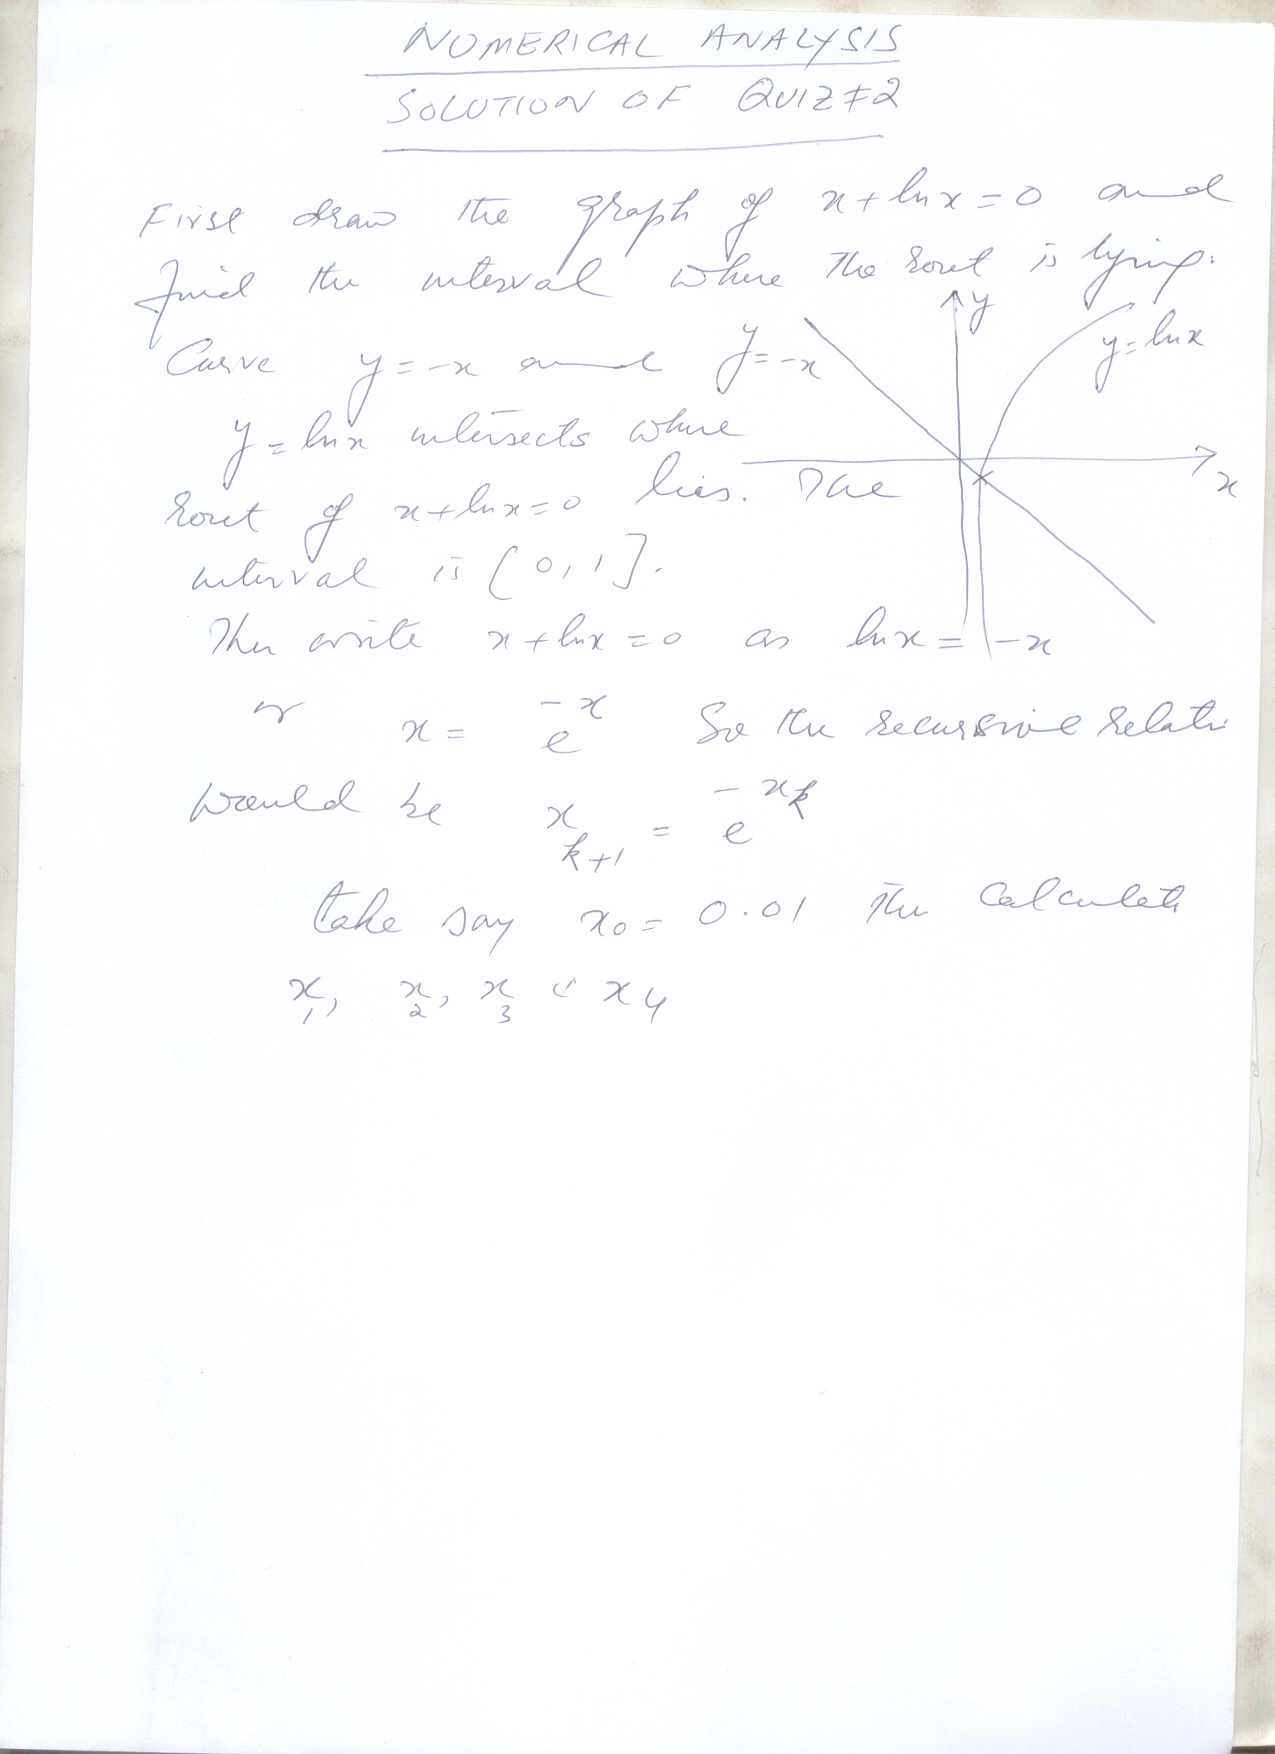 NUMERICAL ANALYSIS
SOLUTION OF QUIZ#2
First draw the graph of x+lnx=0 and
find the interval where the root is lying.
y
y=lnx
Curve y=-x and y=-x
y=lnx intersects where
x
root of x+lnx=0 lies. The
interval is (0,1].
Then write x+lnx=0 as lnx= -x
or x= e^-x So the recursive relati
would be x_k+1 = e^-x_k
take say x_0=0.01 the calculate
x_1, x_2, x_3 & x_4